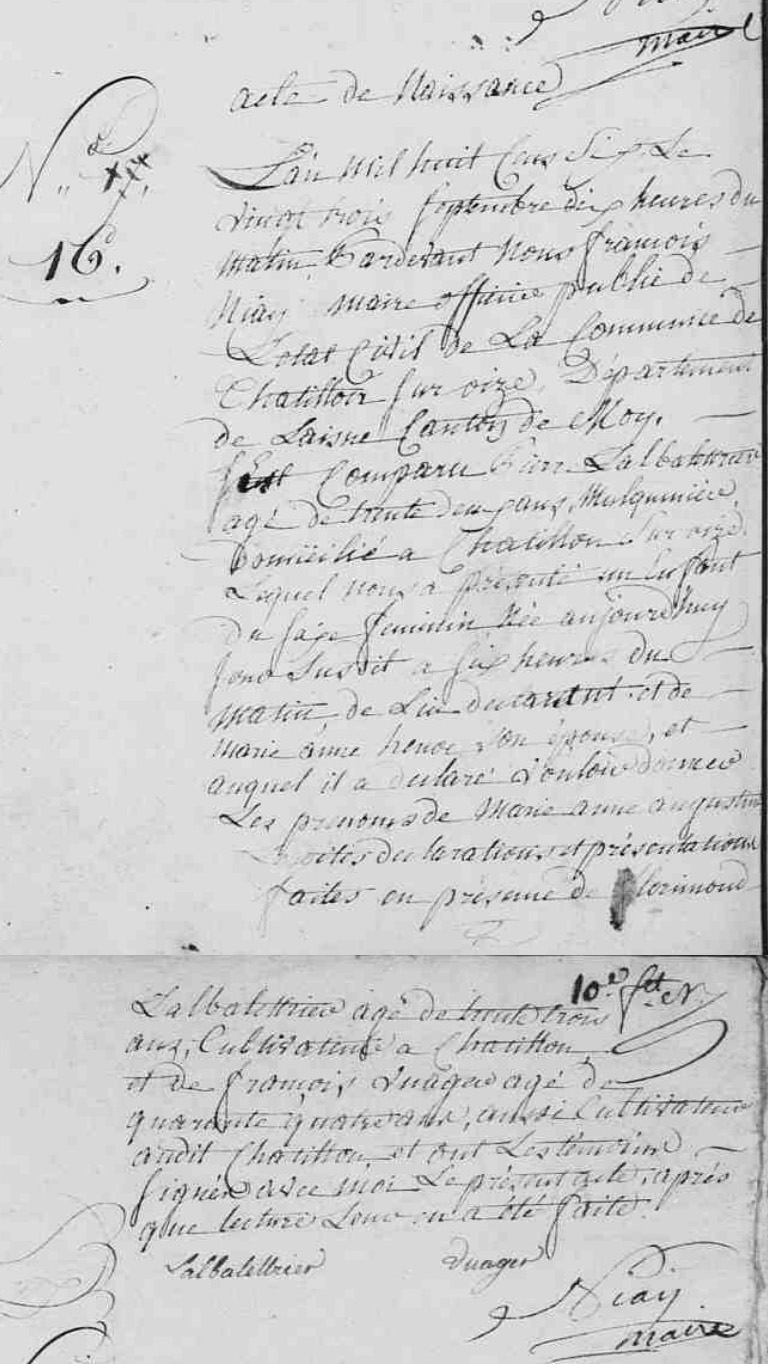 maire
acte de Naissance
N° 16.
L'an Mil huit Cens Six, Le
vingt trois septembre dix heures du
matin Pardevant Nous françois
Niay maire officier public de
L'etat Civil de La Commune de
Chatillon sur oize, Département
de Laisne Canton de Moy.
est Comparu Pierre Lalbalettrier
agé de trente deux ans, Mulquinier,
Domicilié a Chatillon Sur oize.
Lequel nous a présenté un Enfant
du sexe feminin Née aujourd'huy
jour Susdit a six heures du
Matin, de Lui declarant et de
marie anne son épouse, et
auquel il a declaré vouloir donner
Les prenoms de Marie anne augustine
Lesdites declarations et présentations
faites en présence de florimond
10.e f.et
Lalbalettrier agé de trente trois
ans, Cultivateur a Chatillon,
et de françois Vuager agé de
quarante quatre ans, aussi Cultivateur
audit Chatillon, et ont Les témoins
signés avec moi Le présent acte, après
que lecture Leur en a été faite.
Lalbalettrier Vuager
Niay
maire